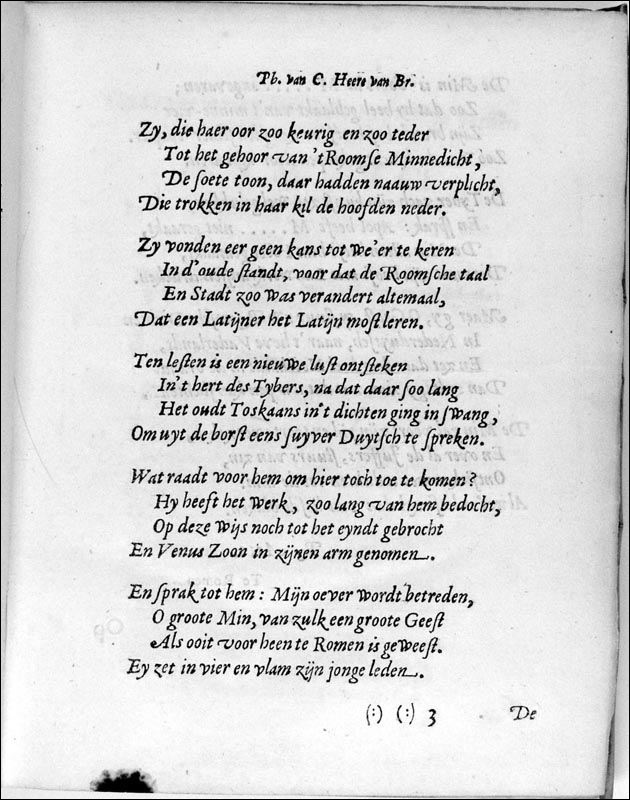 Pb. van C. Heere van Br.
Zy, die haer oor zoo keurig en zoo teder
Tot het gehoor van 't Roomse Minnedicht,
De soete toon, daar hadden naauw verplicht,
Die trokken in haar kil de hoofden neder.
Zy vonden eer geen kans tot we'er te keren
In d'oude standt, voor dat de Roomsche taal
En Stadt zoo was verandert altemaal,
Dat een Latijner het Latijn most leren.
Ten lesten is een nieuwe lust ontsteken
In't hert des Tybers, na dat daar soo lang
Het oudt Toskaans in't dichten ging in swang,
Om uyt de borst eens suyver Duytsch te spreken.
Wat raadt voor hem om hier toch toe te komen?
Hy heeft het werk, zoo lang van hem bedocht,
Op deze wijs noch tot het eyndt gebrocht
En Venus Zoon in zijnen arm genomen.
En sprak tot hem: Mijn oever wordt betreden,
O groote Min, van zulk een groote Geest
Als ooit voor heen te Romen is geweest.
Ey zet in vier en vlam zijn jonge leden.
(:) (:) 3 De